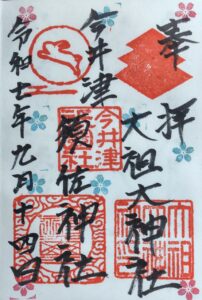 奉拝
大祖大神社
今井津
須佐神社
令和七年九月十四日
今井津
須佐
神社